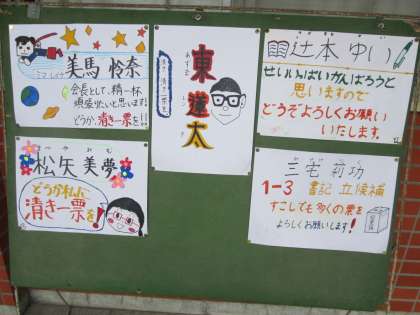 ミマ レイナ
美馬 怜奈
会長として、精一杯
頑張りたいと思います!
どうか、清き一票を!!
まつ や み ゆ
松矢 美夢
どうか私に
清き一票
を!
清き清き一票を
東 蓮太
辻本 ゆい
せいいっぱいがんばろうと
思いますので
どうぞよろしくお願い
いたします。
三宅 莉功
1-3 書記 立候補
すこしでも多くの票を
よろしくお願いします!